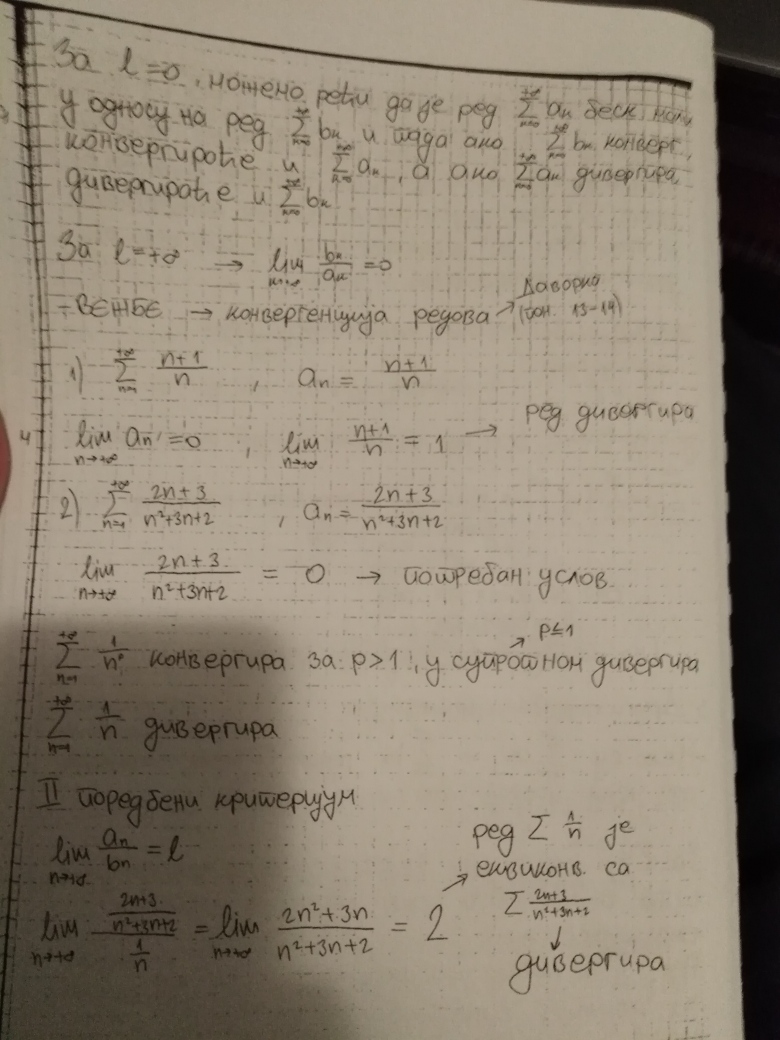 За l=0, можемо рећи да је ред \sum_{n=0}^{+∞} a_n беск. мали
у односу на ред \sum_{n=0}^{+∞} b_n и тада ако \sum_{n=0}^{+∞} b_n конверг.,
конвергираће и \sum_{n=0}^{+∞} a_n, а ако \sum_{n=0}^{+∞} a_n дивергира,
дивергираће и \sum_{n=0}^{+∞} b_n
За l=+∞ → \lim_{n→+∞} \frac{b_n}{a_n} =0
-ВЕЖБЕ → конвергенција редова → Даворка
13-14)
1) \sum_{n=1}^{+∞} \frac{n+1}{n} , a_n = \frac{n+1}{n}
\lim_{n→+∞} a_n =0 , \lim_{n→+∞} \frac{n+1}{n} = 1 → ред дивергира
2) \sum_{n=1}^{+∞} \frac{2n+3}{n²+3n+2} , a_n = \frac{2n+3}{n²+3n+2}
\lim_{n→+∞} \frac{2n+3}{n²+3n+2} = 0 → потребан услов
\sum_{n=1}^{+∞} \frac{1}{n^p} конвергира за p>1, у супротном дивергира
→ p≤1
\sum_{n=1}^{+∞} \frac{1}{n} дивергира
II поредбени критеријум
\lim_{n→+∞} \frac{a_n}{b_n} = l
\lim_{n→+∞} \frac{\frac{2n+3}{n²+3n+2}}{\frac{1}{n}} = \lim_{n→+∞} \frac{2n²+3n}{n²+3n+2} = 2
→ ред Σ \frac{1}{n} је
еквиконв. са
Σ \frac{2n+3}{n²+3n+2}
↓
дивергира